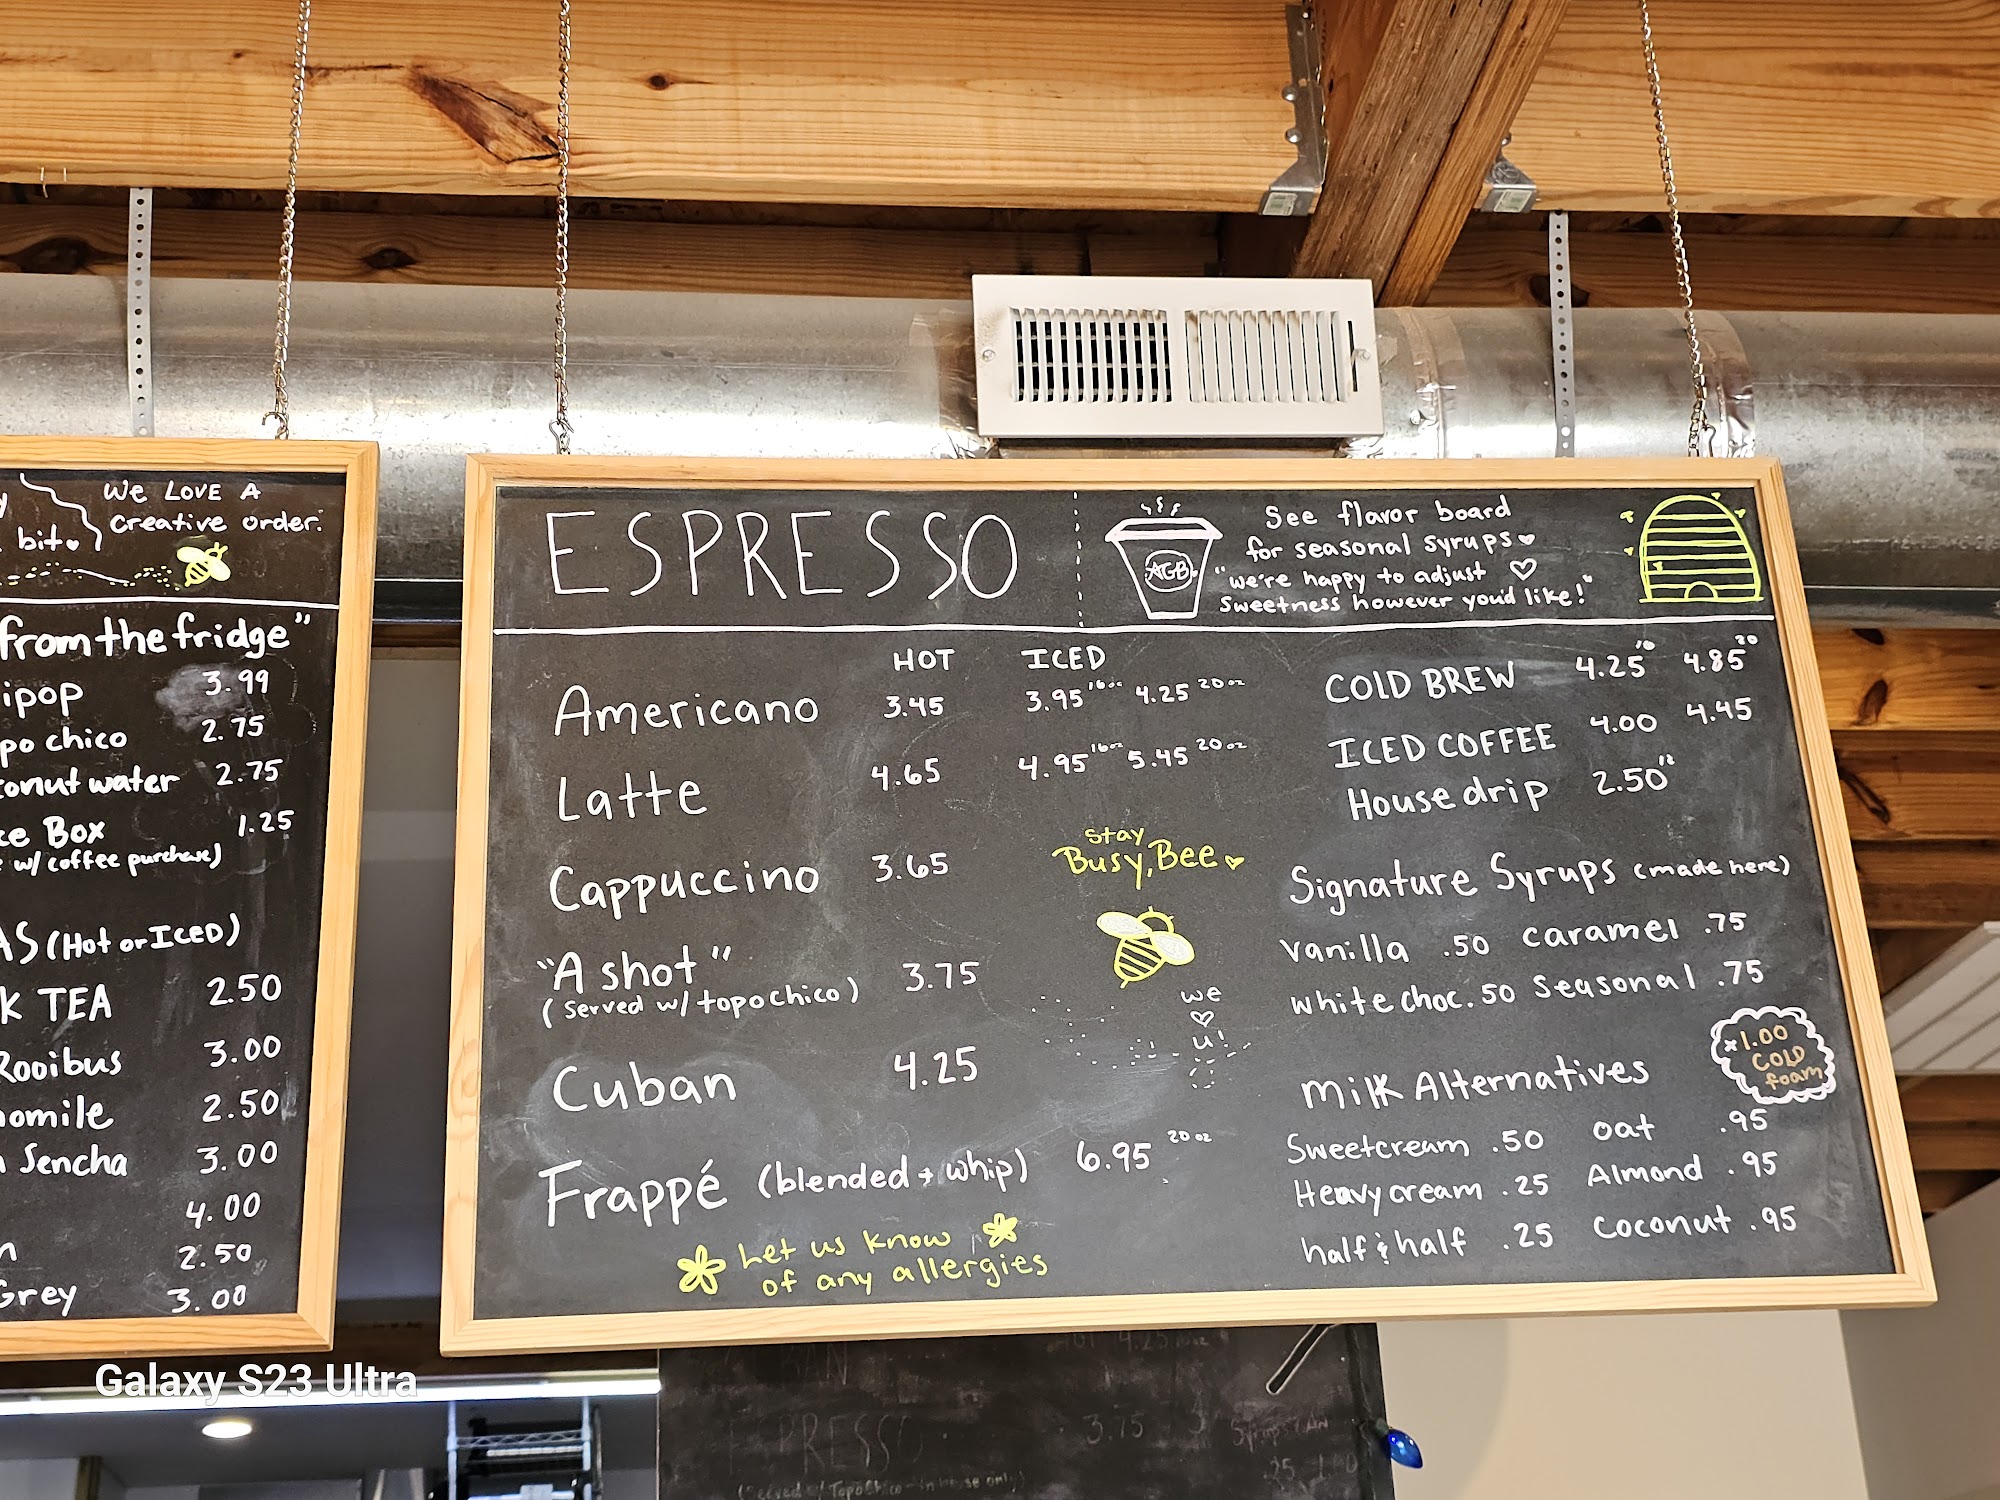 bit
We LOVE A
creative order.
from the fridge"
ipop 3.99
po chico 2.75
conut water 2.75
ce Box 1.25
w/ coffee purchase)
AS (Hot or Iced)
K TEA 2.50
Rooibus 3.00
homile 2.50
n Sencha 3.00
4.00
n 2.50
Grey 3.00
ESPRESSO
AGB
See flavor board
for seasonal syrups
"we're happy to adjust
Sweetness however you'd like!"
HOT ICED
Americano 3.45 3.95 16oz 4.25 20oz
Latte 4.65 4.95 16oz 5.45 20oz
Cappuccino 3.65
"A shot" 3.75
(Served w/ topochico)
Cuban 4.25
Frappé (blended + whip) 6.95 20oz
Let us know
of any allergies
Stay
Busy, Bee
we
u!
COLD BREW 4.25 16 4.85 20
ICED COFFEE 4.00 4.45
House drip 2.50 12
Signature Syrups (made here)
vanilla .50 caramel .75
white choc .50 Seasonal .75
*1.00
COLD
foam
Milk Alternatives
Sweetcream .50 oat .95
Heavy cream .25 Almond .95
half & half .25 Coconut .95
4.25
ESPRESSO 3.75
Galaxy S23 Ultra